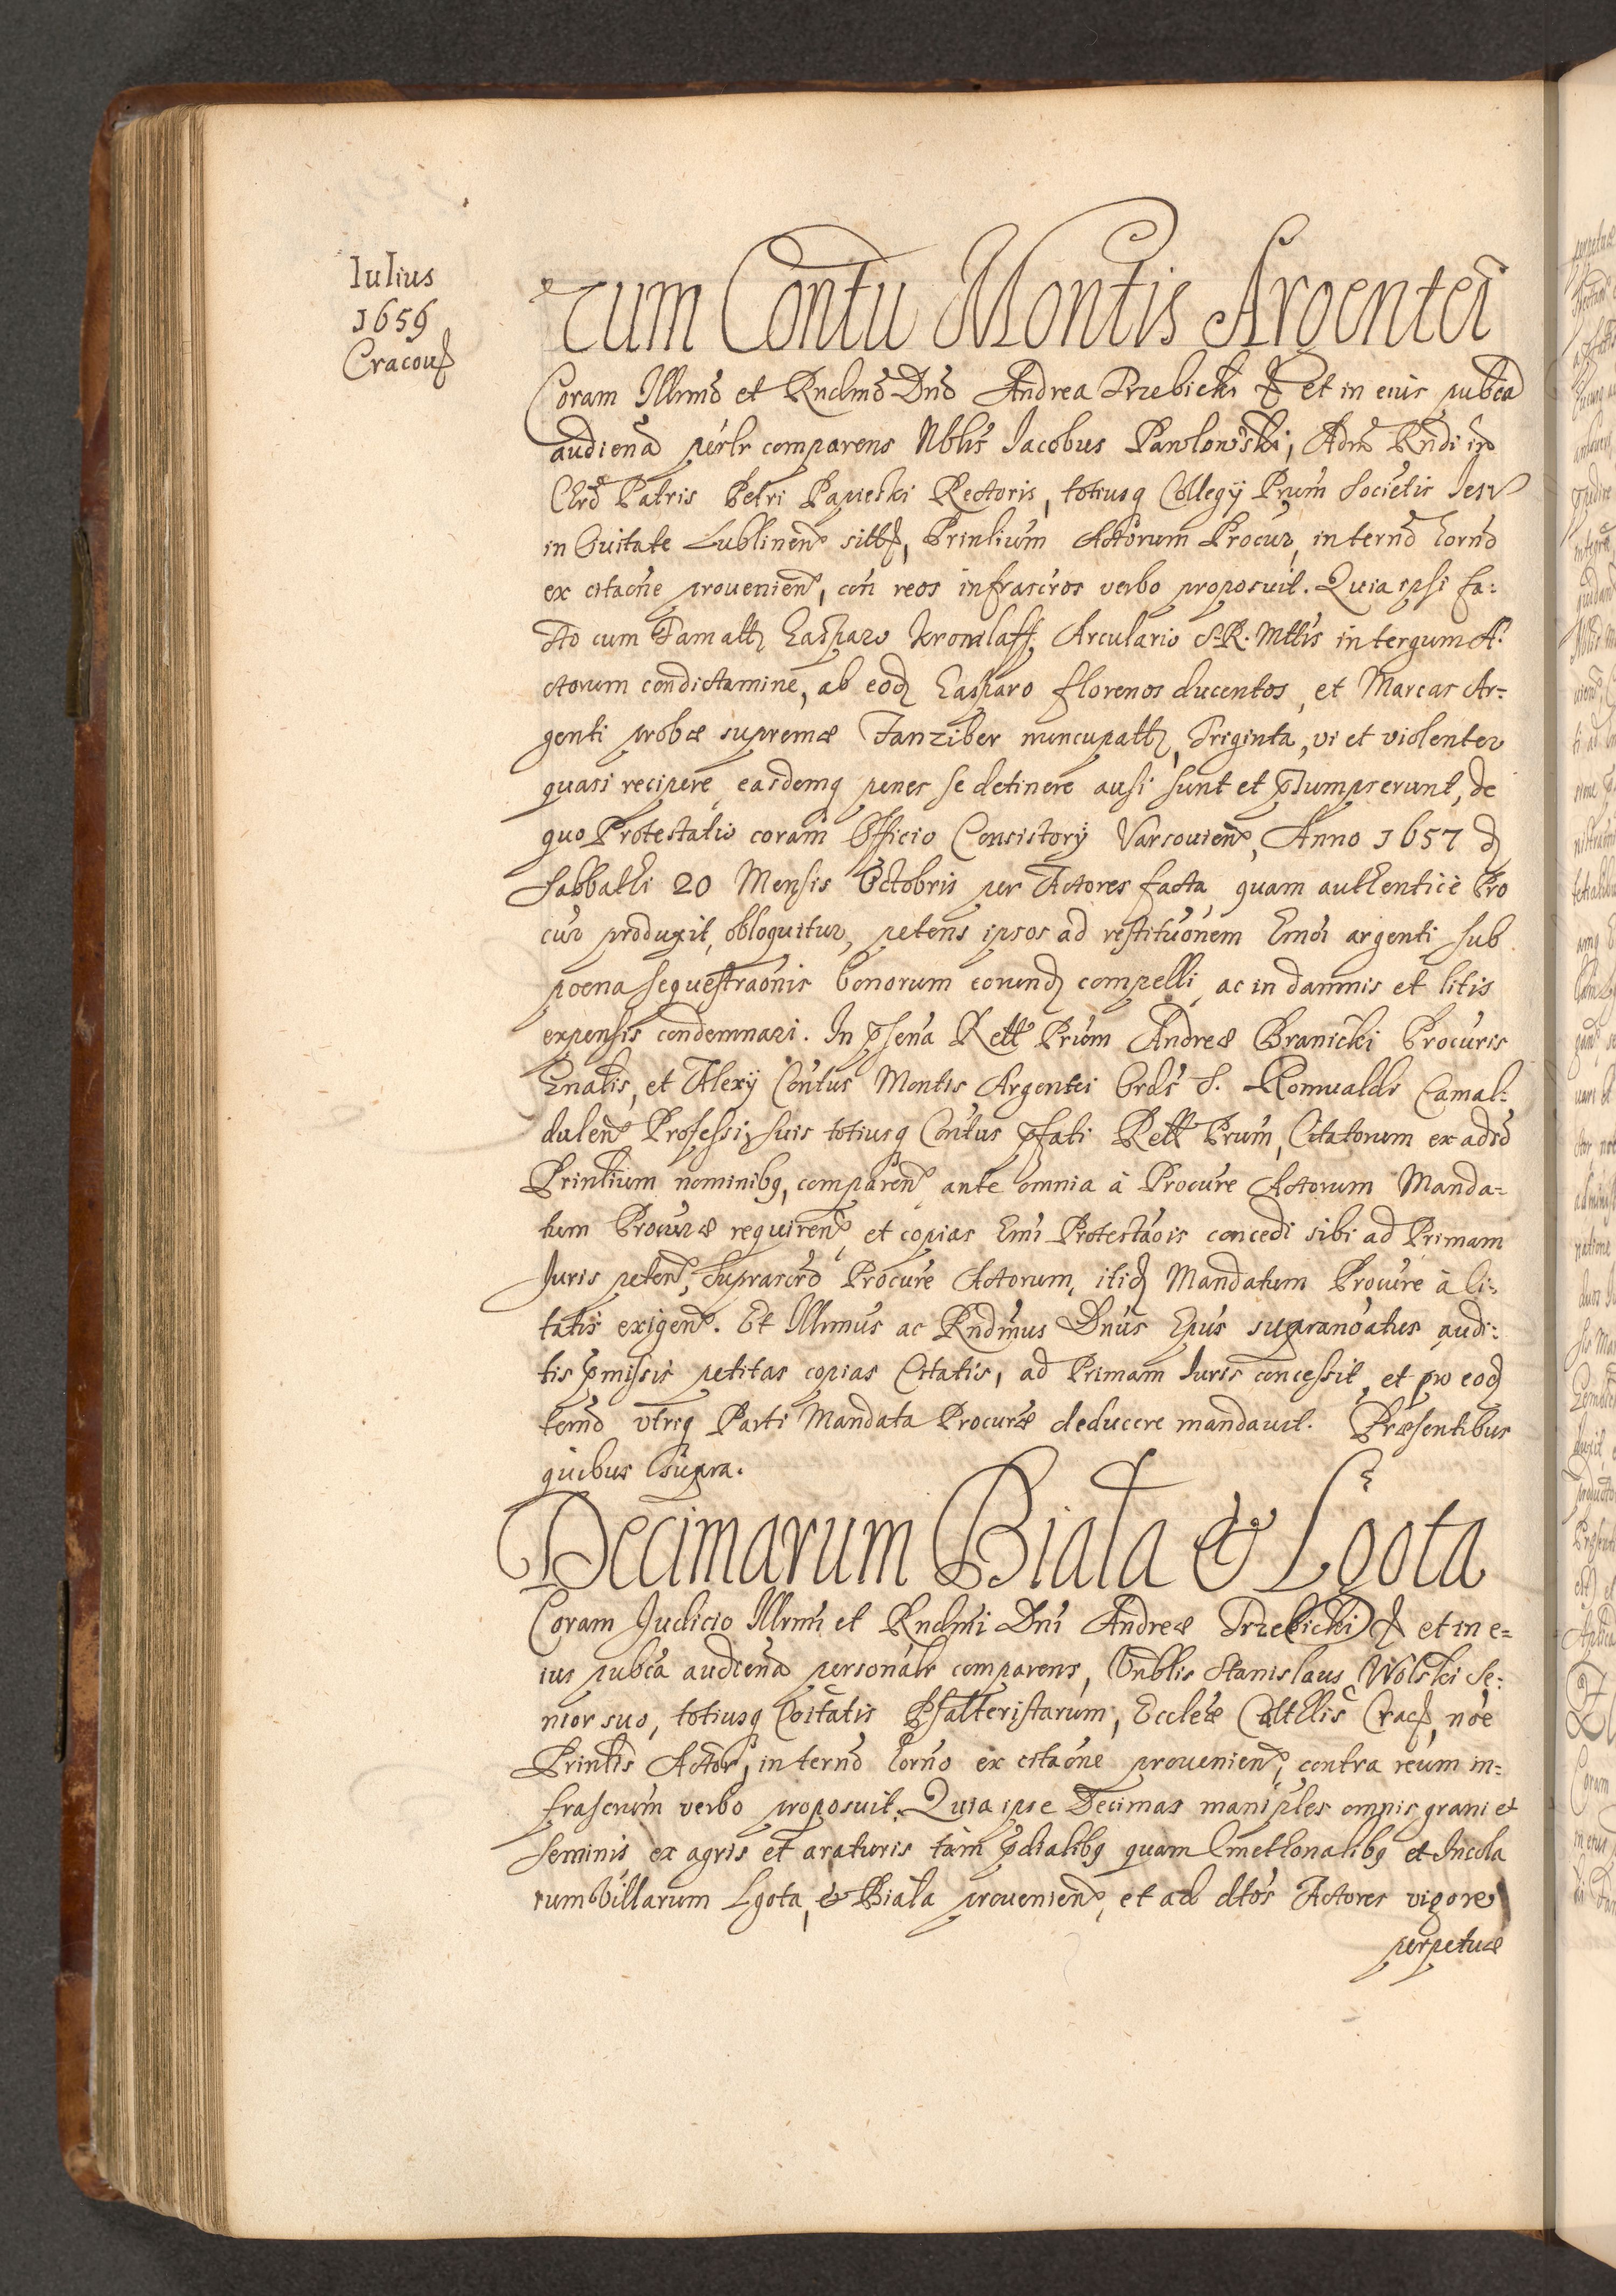 Iulius
1659
Cracou
cum Contu Montis Argentei
Coram Illrmo et Rndmo Dno Andrea Trzebicki & et in eius pubca
audiena perlr comparens Nblis Iacobus Pawlowski, Adm Rndi in
Chro Patris Petri Papieski Rectoris, totiusq Collegij Prum Societis Iesu
in Ciuitate Lublinen sitt, Prinlium Actorum Procur, in termo horno
ex citaone prouenien, con reos infrascros verbo proposuit. Quia ipsi fa:
cto cum Famatt Casparo Kronilaff Arculario S. R. Mttis in tergum A:
ctorum condictamine, ab eod Casparo florenos ducentos, et Marcas Ar=
genti probæ supremæ Fanziber nuncupatt, Triginta, vi et violenter
quasi recipere easdemq penes se detinere ausi sunt et psumpserunt, de
quo Protestatio coram Officio Consistorij Varsouien, Anno 1657 d
Sabbathi 20 Mensis Octobris per Actores facta, quam authentice Pro
cur produxit, obloquitur, petens ipsos ad restituonem Emoi argenti sub
poena sequestraonis bonorum eorund compelli, ac in damnis et litis
expensis condemnari. In psena Rett Prum Andreæ Branicki Procuris
Gnalis, et Alexij Contus Montis Argentei Ords S. Romualdi Camal:
dulen Professi, suis totiusq Contus pfati Rett Prum, Citatorum ex adso
Prinlium nominibq, comparen ante omnia à Procure Actorum Manda=
tum Procuræ requiren et copias Emi Protestaois concedi sibi ad Primam
Iuris peten, Suprascro Procure Actorum, itid Mandatum Procure à Ci:
tatis exigen. Et Illrmus ac Rndmus Dnus Epus supranoatus, audi:
tis pmissis petitas copias Citatis, ad Primam Iuris concessit, et pro eod
termo vtriq Parti Mandata Procuræ deducere mandauit. Præsentibus
quibus supra.
Decimarum Biała & Lgota
Coram Judicio Illrmi et Rndmi Dni Andreæ Trzebicki & et in e=
ius pubca audiena personalr comparens, Vnblis Stanislaus Wolski Se:
nior suo, totiusq Coitatis Psalteristarum, Eccleæ Cattllis Crac, noe
Prinlis Actor, in termo horno ex citaone prouenien, contra reum in=
frascrum verbo proposuit. Quia ipse Decimas maniples omnis grani et
seminis ex agris et araturis tam pdialibq quam Cmethonalibq et Incola
rum Villarum Lgota, & Biała prouenien, et ad dtos Actores vigore
perpetuæ